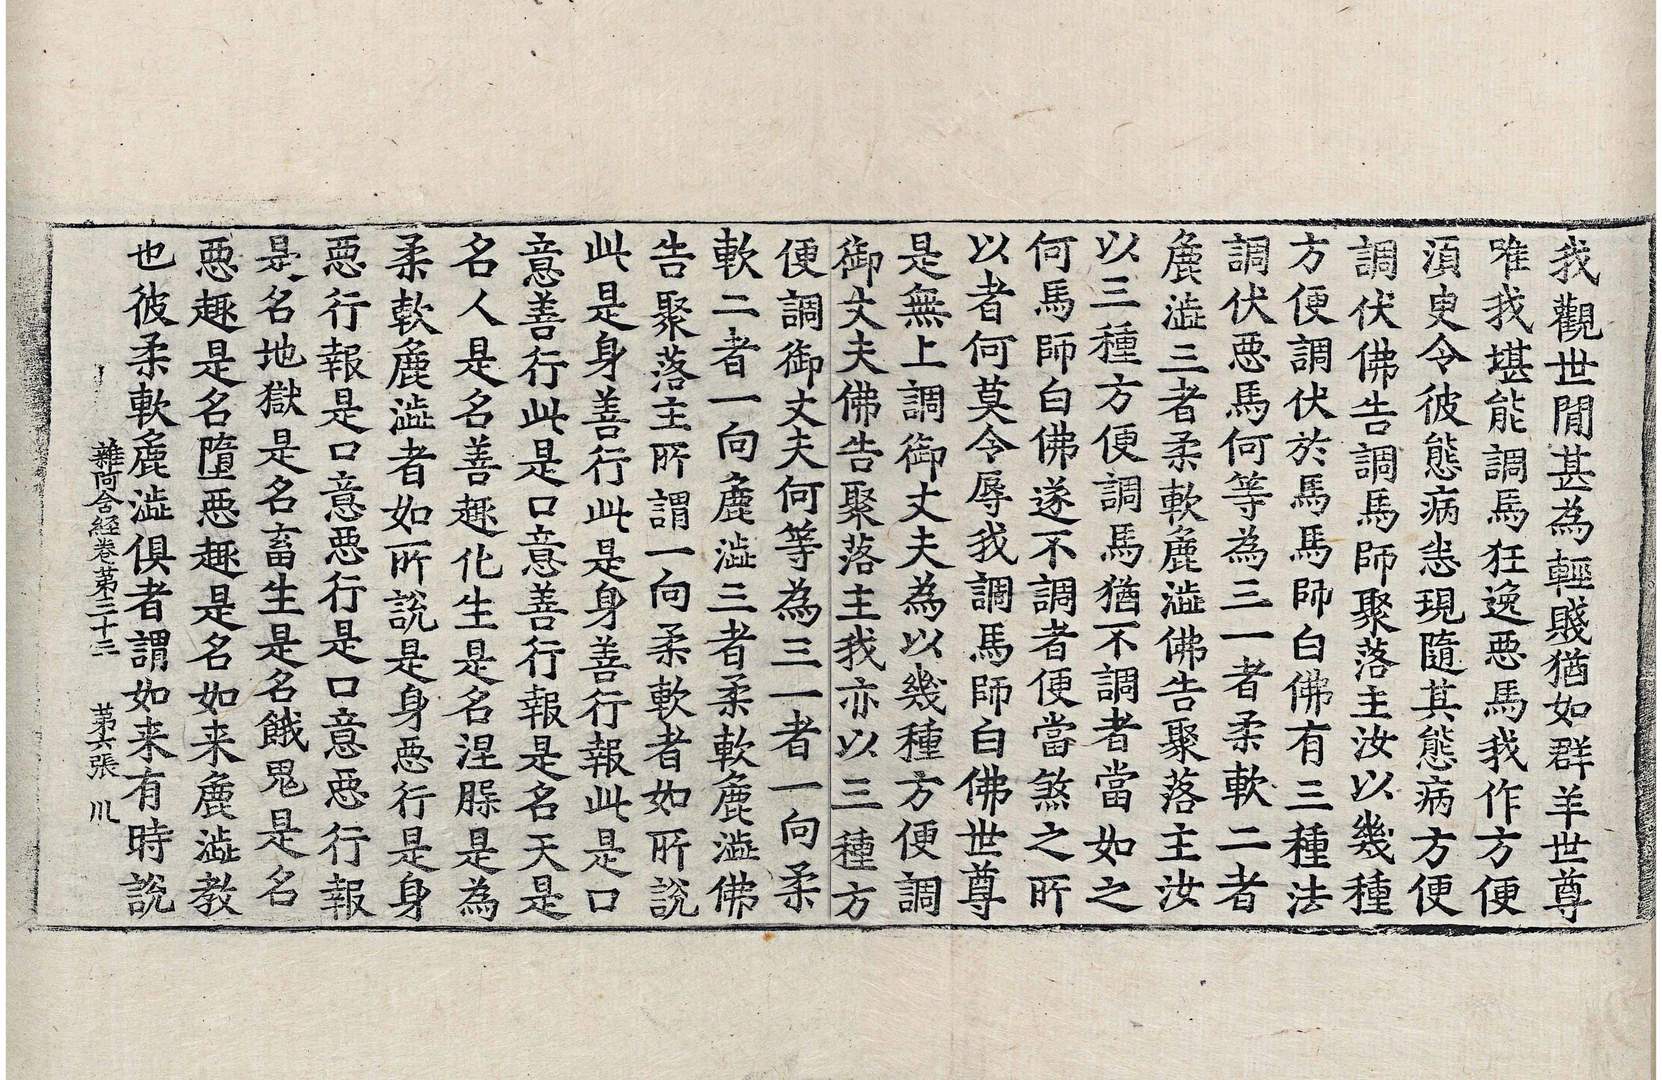 我觀世間甚為輕賤猶如群羊世尊
唯我堪能調馬狂逸惡馬我作方便
湏臾令彼態病悉現隨其態病方便
調伏佛告調馬師聚落主汝以幾種
方便調伏於馬馬師白佛有三種法
調伏惡馬何等為三一者柔軟二者
麁澁三者柔軟麁澁佛告聚落主汝
以三種方便調馬猶不調者當如之
何馬師白佛遂不調者便當煞之所
以者何莫令辱我調馬師白佛世尊
是無上調御丈夫為以幾種方便調
御丈夫佛告聚落主我亦以三種方
便調御丈夫何等為三一者一向柔
軟二者一向麁澁三者柔軟麁澁佛
告聚落主所謂一向柔軟者如所說
此是身善行此是身善行報此是口
意善行此是口意善行報是名天是
名人是名善趣化生是名涅槃是為
柔軟麁澁者如所說是身惡行是身
惡行報是口意惡行是口意惡行報
是名地獄是名畜生是名餓鬼是名
惡趣是名墮惡趣是名如来麁澁教
也彼柔軟麁澁俱者謂如来有時說
雜阿含經卷第三十三 第六張 川